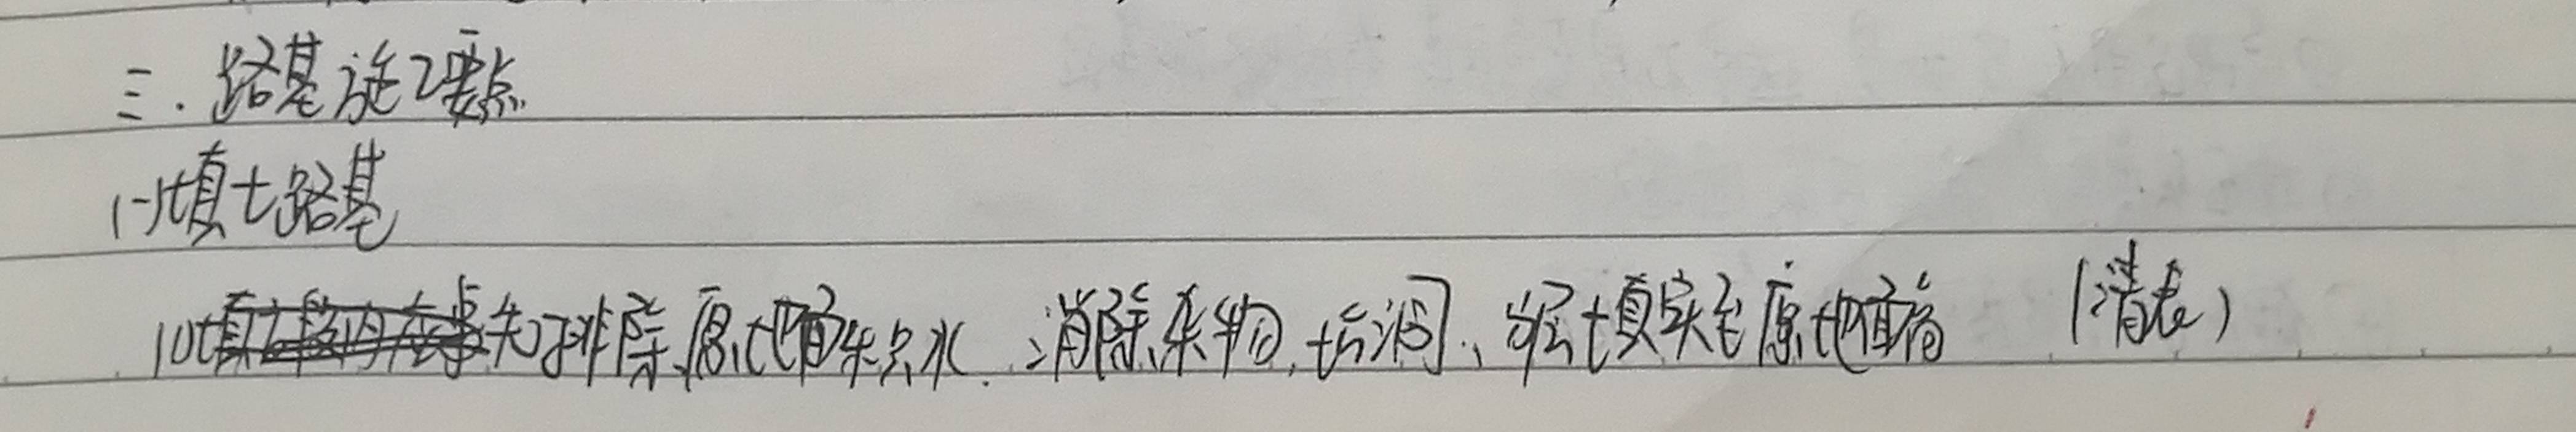 三.路基施工要点
(一)填土路基
先排除原地面积水.清除杂物.坑洞、填实至原地面高 (清表)